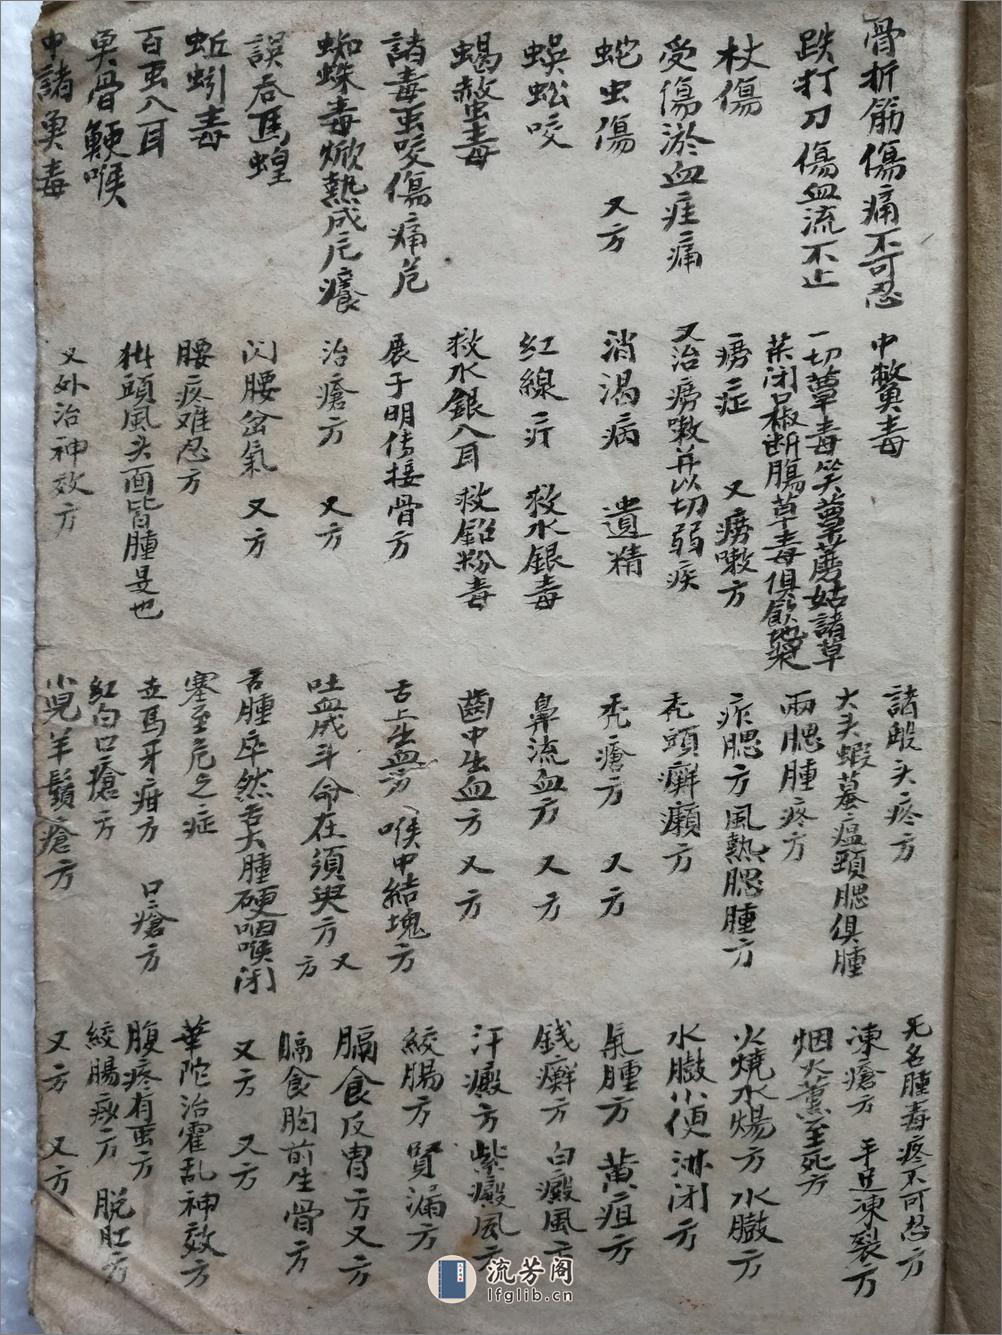 骨折筋傷痛不可忍
跌打刀傷血流不止
杖傷
受傷淤血疰痛
蛇虫傷 又方
蜈蚣咬
蝎螫毒
諸毒虫咬傷痛危
蜘蛛毒焮熱成瘡
誤吞馬蝗
蚯蚓毒
百虫入耳
魚骨鯁喉
中諸魚毒
中鱉毒
一切蕈毒笑蕈蘑姑諸草
菜閉口椒断腸草毒俱飲地漿
癆症 又癆嗽方
又治癆嗽并以切弱疾
消渴病 遺精
紅線疔 救水銀毒
救水銀入耳 救鉛粉毒
展子明传接骨方
治瘡方 又方
闪腰岔氣 又方
腰疼难忍方
頭風头面皆腫是也
又外治神效方
諸般头疼方
大头蝦蟇瘟頸腮俱腫
兩腮腫疼方
痄腮方風熱腮腫方
秃頭癬癩方
秃瘡方 又方
鼻流血方 又方
齒中生血方 又方
舌上生血方 喉中結塊方
吐血成斗命在須臾方 又方
舌腫卒然舌大腫硬咽喉闭
塞至危之症
走馬牙疳方 口瘡方
紅白口瘡方
小児羊鬚瘡方
无名腫毒疼不可忍方
凍瘡方 手足凍裂方
烟火薰至死方
火燒水煬方 水臌方
水臌小便淋闭方
氣腫方 黄疸方
錢癬方 白癜風方
汗癜方 紫癜風方
絞腸方 腎漏方
膈食反胃方 又方
膈食胸前生骨方
又方 又方
華陀治霍乱神效方
腹疼有虫方
絞腸痧方 脱肛方
又方 又方
流芳阁
lfglib.cn